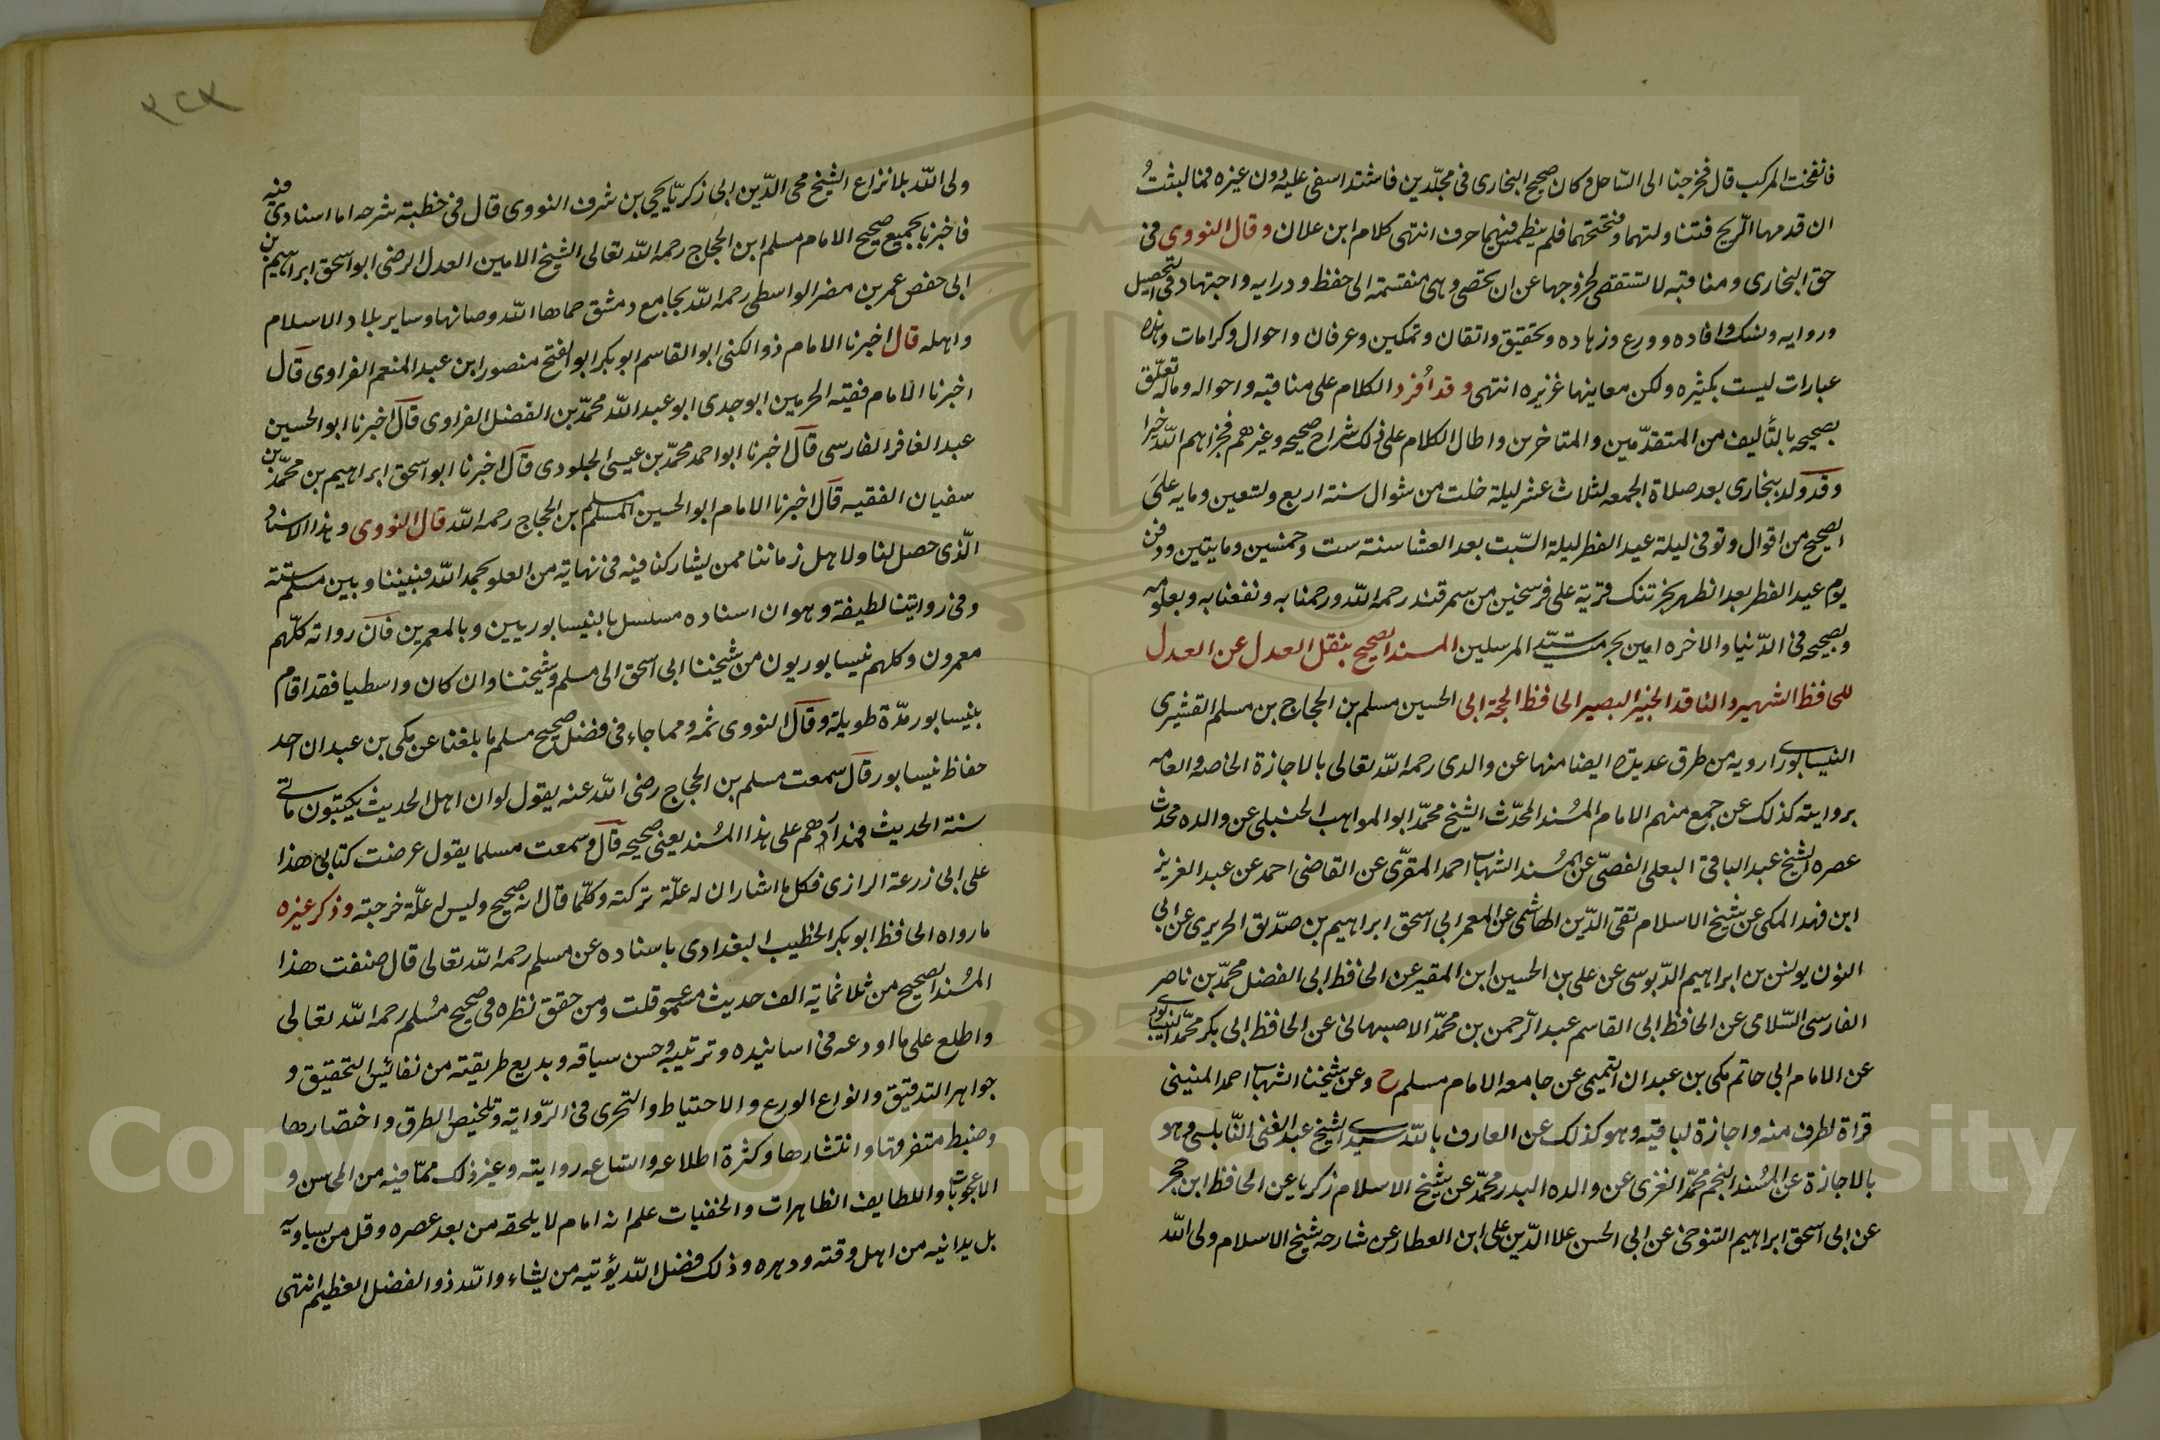 فانفخت المركب قال فخرجنا الى الساحل وكان صحيح البخارى فى مجلدين فاشتد اسفى عليه دون غيره فما لبثت
ان قدمها الريح فتناولتهما وفتحتهما فلم ينطمس فيهما حرف انتهى كلام ابن علان وقال النووى فى
حق البخارى ومناقبه لا تستقصى لخروجها عن ان تحصى وهى منقسمة الى حفظ ودرايه واجتهاد فى التحصيل
وروايه ونسك وافاده وورع وزهاده وتحقيق واتقان وتمكين وعرفان واحوال وكرامات وهذه
عبارات ليست بكثيره ولكن معاينها غزيره انتهى وقد افرد الكلام على مناقبه واحواله وماله تعلق
بصحيحه بالتأليف من المتقدمين والمتاخرين واطال الكلام على ذلك شراح صحيحه وغيرهم فجزاهم الله خيرا
وقد ولد ببخارى بعد صلاة الجمعه لثلاث عشر ليلة خلت من شوال سنة اربع وتسعين ومايه على
الصحيح من اقوال وتوفى ليلة عيد الفطر ليلة السبت بعد العشا سنة ست وخمسين ومايتين ودفن
يوم عيد الفطر بعد الظهر بخرتنك قرية على فرسخين من سمرقند رحمه الله ورحمنا به ونفعنا به وبعلومه
وبصحيحه فى الدنيا والاخره امين بحرمت سيد المرسلين المسند الصحيح بنقل العدل عن العدل
للحافظ الشهير والناقد الخبير البصير الحافظ الحجة ابى الحسين مسلم بن الحجاج بن مسلم القشيرى
النيسابورى ارويه من طرق عديدة ايضا منها عن والدى رحمه الله تعالى بالاجازة الخاصه والعامه
بروايته كذلك عن جمع منهم الامام المسند المحدث الشيخ محمد ابو المواهب الحنبلى عن والده محدث
عصره الشيخ عبد الباقى البعلى الفصى عن المسند الشهاب احمد المقرى عن القاضى احمد عن عبد العزيز
ابن فهد المكى عن شيخ الاسلام تقى الدين الهاشمى عن المعمر ابى اسحق ابراهيم بن صديق الحريرى عن ابى
النون يونس بن ابراهيم الدبوسى عن على بن الحسين ابن المقير عن الحافظ ابى الفضل محمد بن ناصر
الفارسى السلامى عن الحافظ ابى القاسم عبد الرحمن بن محمد الاصبهانى عن الحافظ ابى بكر محمد النيسابورى
عن الامام ابى حاتم مكى بن عبدان التميمى عن جامعه الامام مسلم ح وعن شيخنا الشهاب احمد المنينى
قراة لطرف منه واجازة لباقيه وهو كذلك عن العارف بالله سيدى الشيخ عبد الغنى النابلسى وهو
بالاجازة عن المسند النجم محمد الغزى عن والده البدر محمد عن شيخ الاسلام زكريا عن الحافظ ابن حجر
عن ابى اسحق ابراهيم التنوخى عن ابى الحسن علا الدين على ابن العطار عن شارحه شيخ الاسلام ولى الله
٣٢٣
ولى الله بلا نزاع الشيخ محى الدين ابى زكريا يحيى بن شرف النووى قال فى خطبته شرحه اما اسنادى فيه
فاخبرنا بجميع صحيح الامام مسلم ابن الحجاج رحمه الله تعالى الشيخ الامين العدل الرضى ابو اسحق ابراهيم بن
ابى حفص عمر بن مضر الواسطى رحمه الله بجامع دمشق حماها الله وصانها وساير بلاد الاسلام
واهله قال اخبرنا الامام ذو الكنى ابو القاسم ابو بكر ابو الفتح منصور ابن عبد المنعم الفراوى قال
اخبرنا الامام فقيه الحرمين ابو جدى ابو عبد الله محمد بن الفضل الفراوى قال اخبرنا ابو الحسين
عبد الغافر الفارسى قال اخبرنا ابو احمد محمد بن عيسى الجلودى قال اخبرنا ابو اسحق ابراهيم بن محمد بن
سفيان الفقيه قال اخبرنا الامام ابو الحسين المسلم مسلم بن الحجاج رحمه الله قال النووى وهذا الاسناد
الذى حصل لنا ولاهل زماننا ممن يشاركنا فيه فى نهايته من العلو بحمد الله فبيننا وبين مسلم ستة
وفى روايتنا لطيفة وهو ان اسناده مسلسل بالنيسابوريين وبالمعمرين فان رواته كلهم
معمرون وكلهم نيسابوريون من شيخنا ابى اسحق الى مسلم وشيخنا وان كان واسطيا فقد اقام
بنيسابور مدة طويلة وقال النووى ثمه ومما جاء فى فضل صحيح مسلم ما بلغنا عن مكى بن عبدان احد
حفاظ نيسابور قال سمعت مسلم بن الحجاج رضى الله عنه يقول لو ان اهل الحديث يكتبون مائتى
سنة الحديث فمدارهم على هذا المسند يعنى صحيحه قال وسمعت مسلما يقول عرضت كتابى هذا
على ابى زرعة الرازى فكل ما اشار ان له علة تركته وكلما قال انه صحيح وليس له علة خرجته وذكر غيره
ما رواه الحافظ ابو بكر الخطيب البغدادى باسناده عن مسلم رحمه الله تعالى قال صنفت هذا
المسند الصحيح من ثلاثمائة الف حديث مسموعه قلت ومن حقق نظره فى صحيح مسلم رحمه الله تعالى
واطلع على ما اودعه فى اسانيده وترتيبه وحسن سياقه وبديع طريقته من نفائس التحقيق و
جواهر التدقيق وانواع الورع والاحتياط والتحرى فى الرواية وتلخيص الطرق واختصارها
وضبط متفرقها وانتشارها وكثرة اطلاعه واتساعه روايته وغير ذلك مما فيه من المحاسن و
الاعجوبات واللطايف الظاهرات والخفيات علم انه امام لا يلحقه من بعد عصره وقل من يساويه
بل يدانيه من اهل وقته ودهره وذلك فضل الله يؤتيه من يشاء والله ذو الفضل العظيم انتهى
Copyright © King Saud University